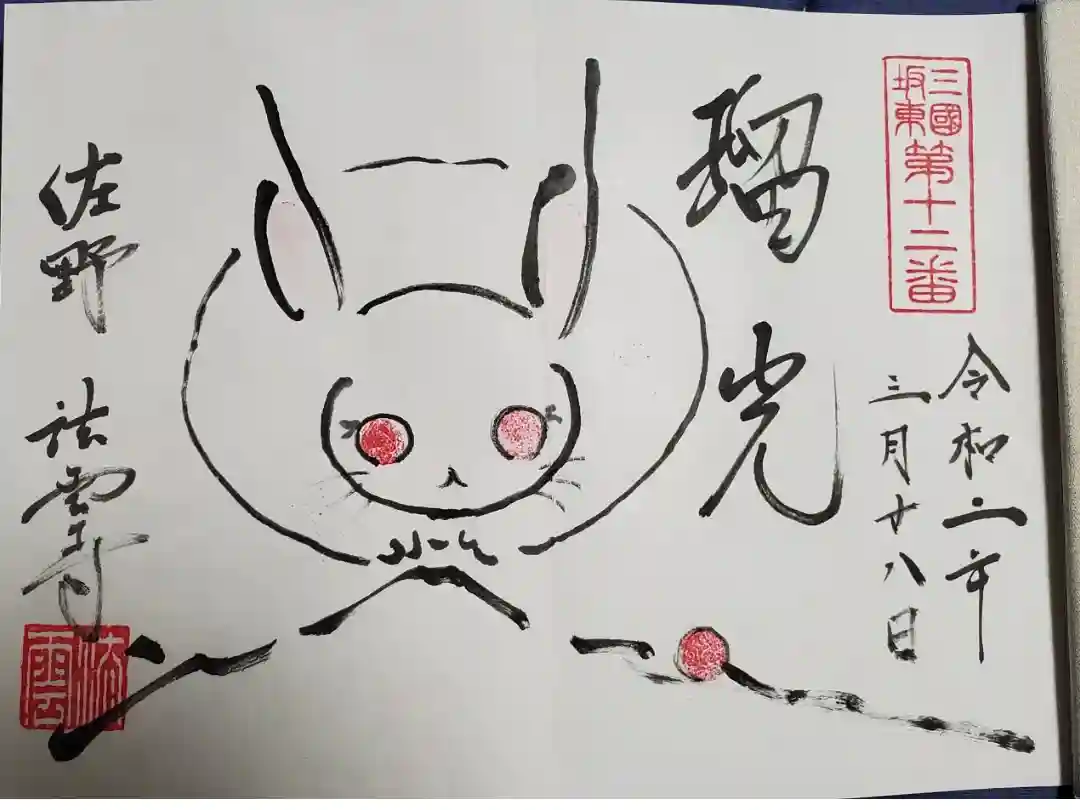 三國
坂東
第十二番
令和二年
三月十八日
瑠光
佐野 法雲寺
法雲